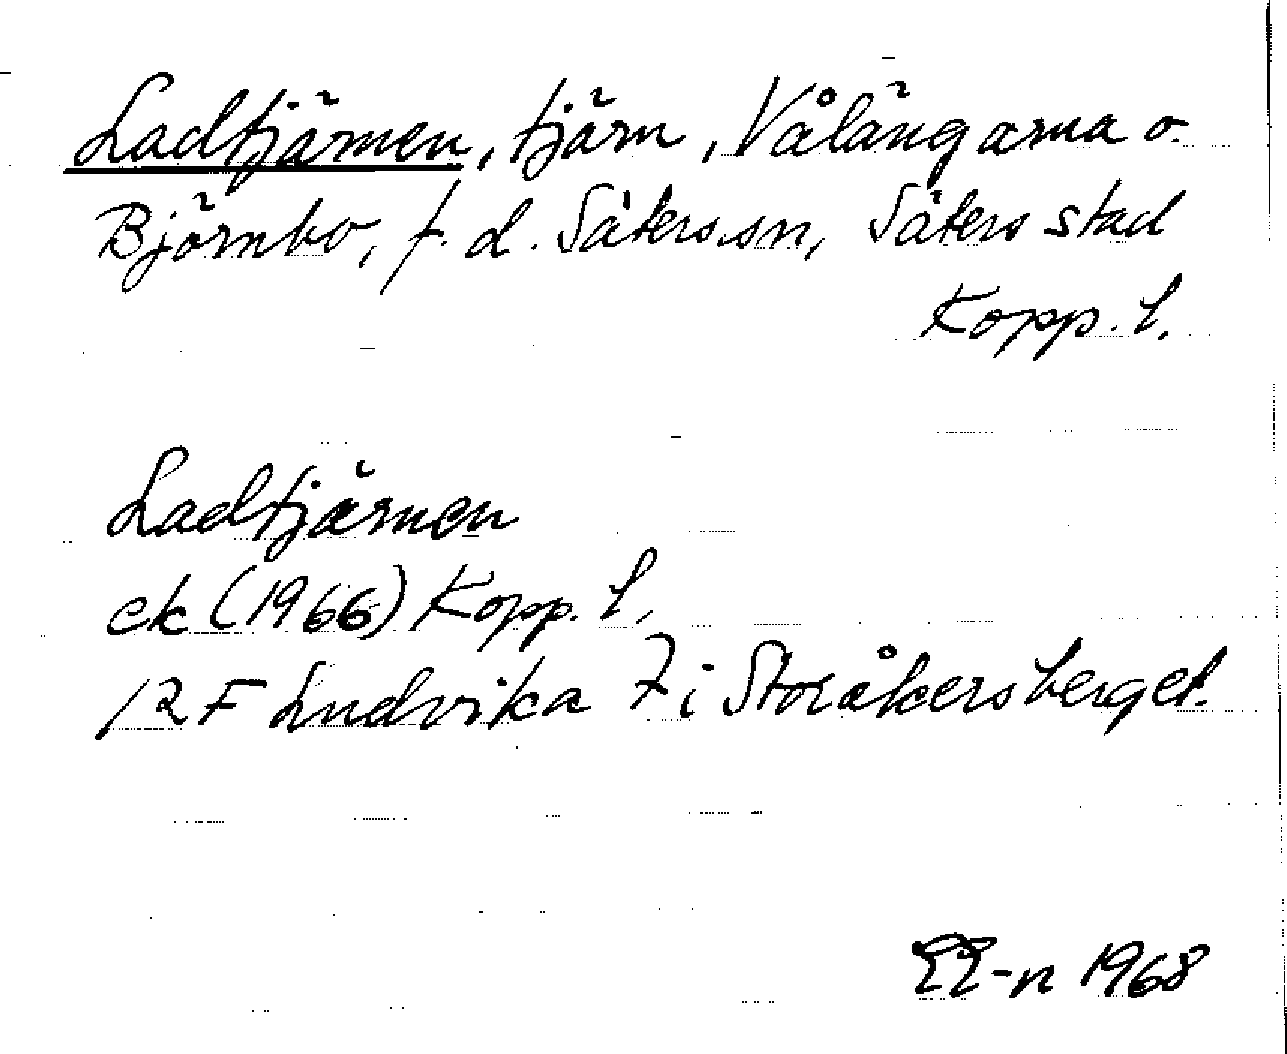 Ladtjärnen, tjärn, Vålängarna o.
Björnbo, f.d. Säters sn, Säters stad
Kopp. l.
Ladtjärnen
ek (1966) Kopp. l.
12 F Ludvika 7 i Storåkersberget.
EE-n 1968